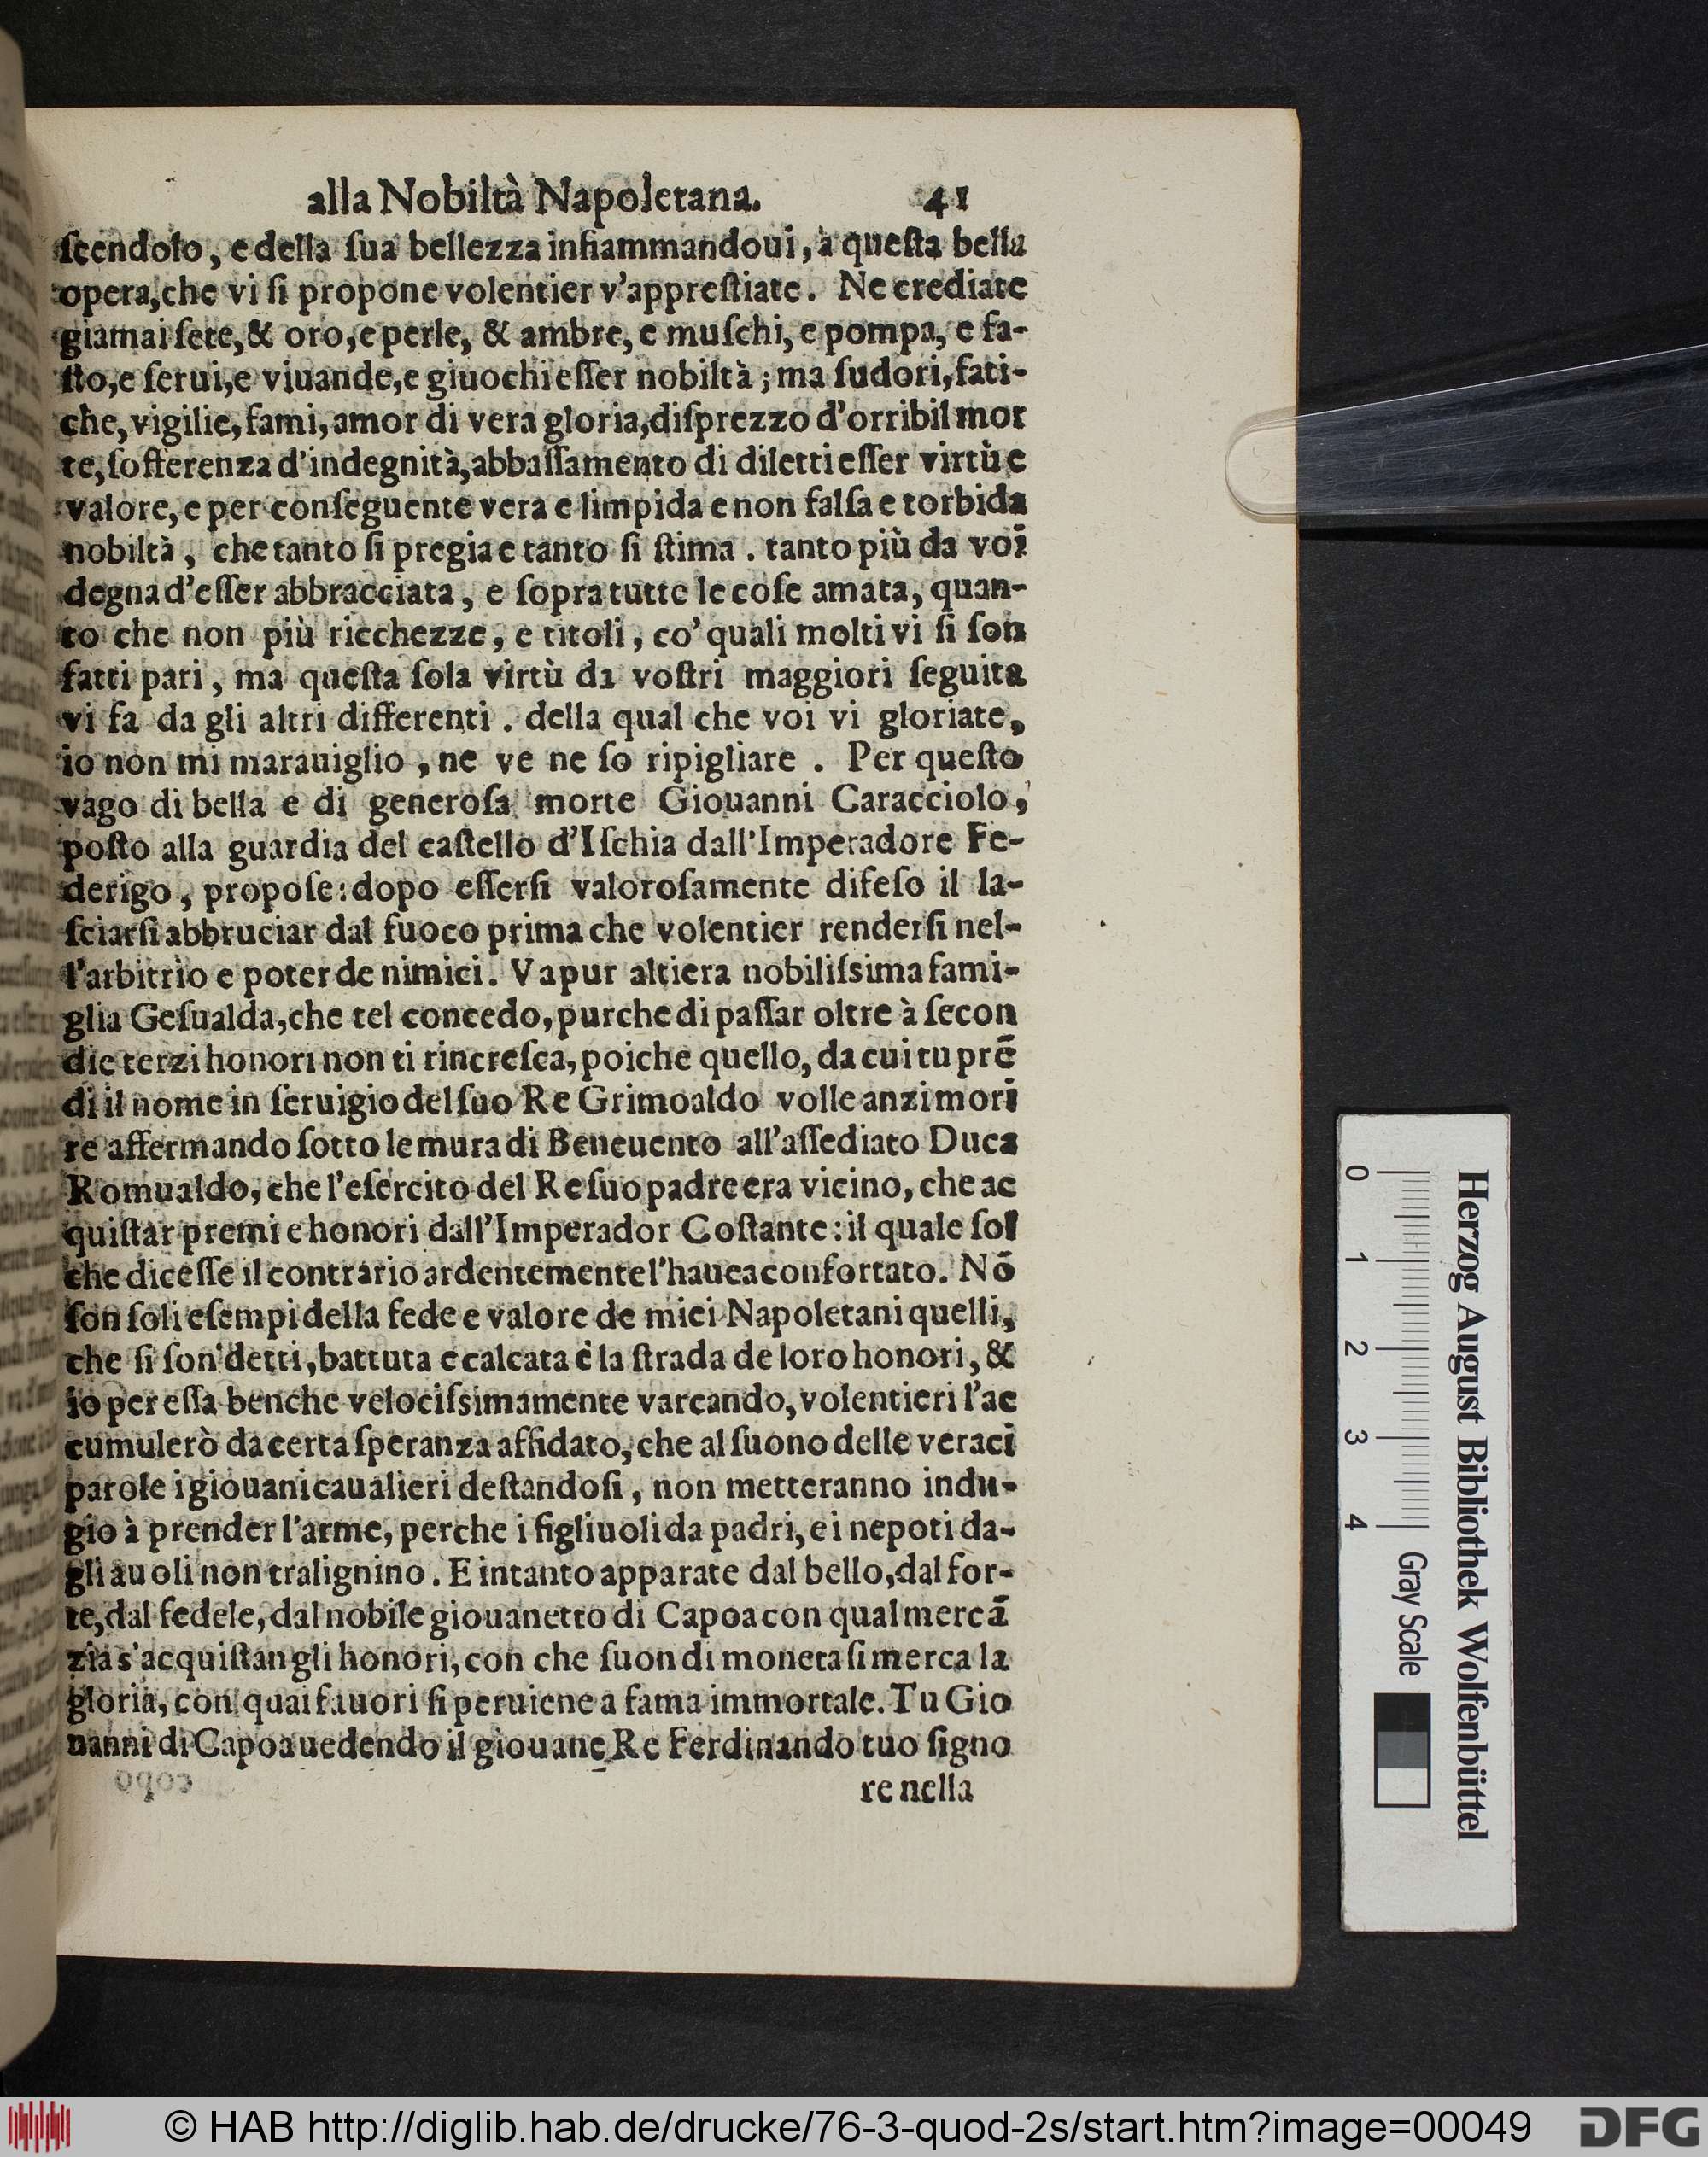 alla Nobiltà Napoletana. 41
ſcendolo, e della ſua bellezza infiammandoui, à queſta bella
opera, che vi ſi propone volentier v'appreſtiate. Ne crediate
giamai ſete, & oro, e perle, & ambre, e muſchi, e pompa, e fa-
ſto, e ſerui, e viuande, e giuochi eſſer nobiltà; ma ſudori, fati-
che, vigilie, fami, amor di vera gloria, diſprezzo d'orribil mor
te, ſofferenza d'indegnità, abbaſſamento di diletti eſſer virtù e
valore, e per conſeguente vera e limpida e non falſa e torbida
nobiltà, che tanto ſi pregia e tanto ſi ſtima. tanto più da voi
degna d'eſſer abbracciata, e ſopra tutte le coſe amata, quan-
to che non più ricchezze, e titoli, co' quali molti vi ſi ſon
fatti pari, ma queſta ſola virtù da voſtri maggiori ſeguita
vi fa da gli altri differenti. della qual che voi vi gloriate,
io non mi marauiglio, ne ve ne ſo ripigliare. Per queſto
vago di bella e di generoſa morte Giouanni Caracciolo,
poſto alla guardia del caſtello d'Iſchia dall'Imperadore Fe-
derigo, propoſe: dopo eſſerſi valoroſamente difeſo il la-
ſciarſi abbruciar dal fuoco prima che volentier renderſi nel-
l'arbitrio e poter de nimici. Va pur altiera nobiliſsima fami-
glia Geſualda, che tel concedo, purche di paſſar oltre à ſecon
di e terzi honori non ti rincreſca, poiche quello, da cui tu prē
di il nome in ſeruigio del ſuo Re Grimoaldo volle anzi mori
re affermando ſotto le mura di Beneuento all'aſſediato Duca
Romualdo, che l'eſercito del Re ſuo padre era vicino, che ac
quiſtar premi e honori dall'Imperador Coſtante: il quale ſol
che diceſſe il contrario ardentemente l'hauea confortato. Nō
ſon ſoli eſempi della fede e valore de miei Napoletani quelli,
che ſi ſon detti, battuta e calcata è la ſtrada de loro honori, &
io per eſſa benche velociſsimamente varcando, volentieri l'ac
cumulerò da certa ſperanza affidato, che al ſuono delle veraci
parole i giouani caualieri deſtandoſi, non metteranno indu-
gio à prender l'arme, perche i figliuoli da padri, e i nepoti da-
gli auoli non tralignino. E intanto apparate dal bello, dal for-
te, dal fedele, dal nobile giouanetto di Capoa con qual mercā
zia s'acquiſtan gli honori, con che ſuon di moneta ſi merca la
gloria, con quai fauori ſi peruiene a fama immortale. Tu Gio
uanni di Capoa uedendo il giouane Re Ferdinando tuo ſigno
re nella
0 1 2 3 4 Gray Scale
Herzog August Bibliothek Wolfenbüttel
© HAB http://diglib.hab.de/drucke/76-3-quod-2s/start.htm?image=00049
DFG